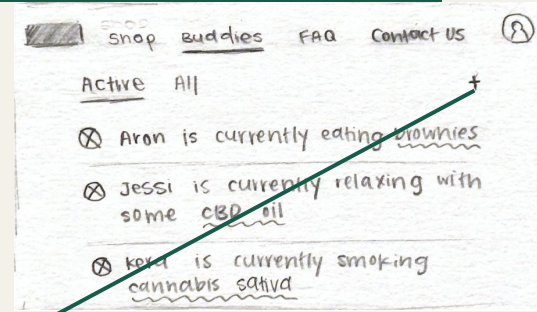 Shop Buddies FAQ Contact Us
Active All +
Aron is currently eating brownies
Jessi is currently relaxing with
some CBD oil
is currently smoking
cannabis sativa